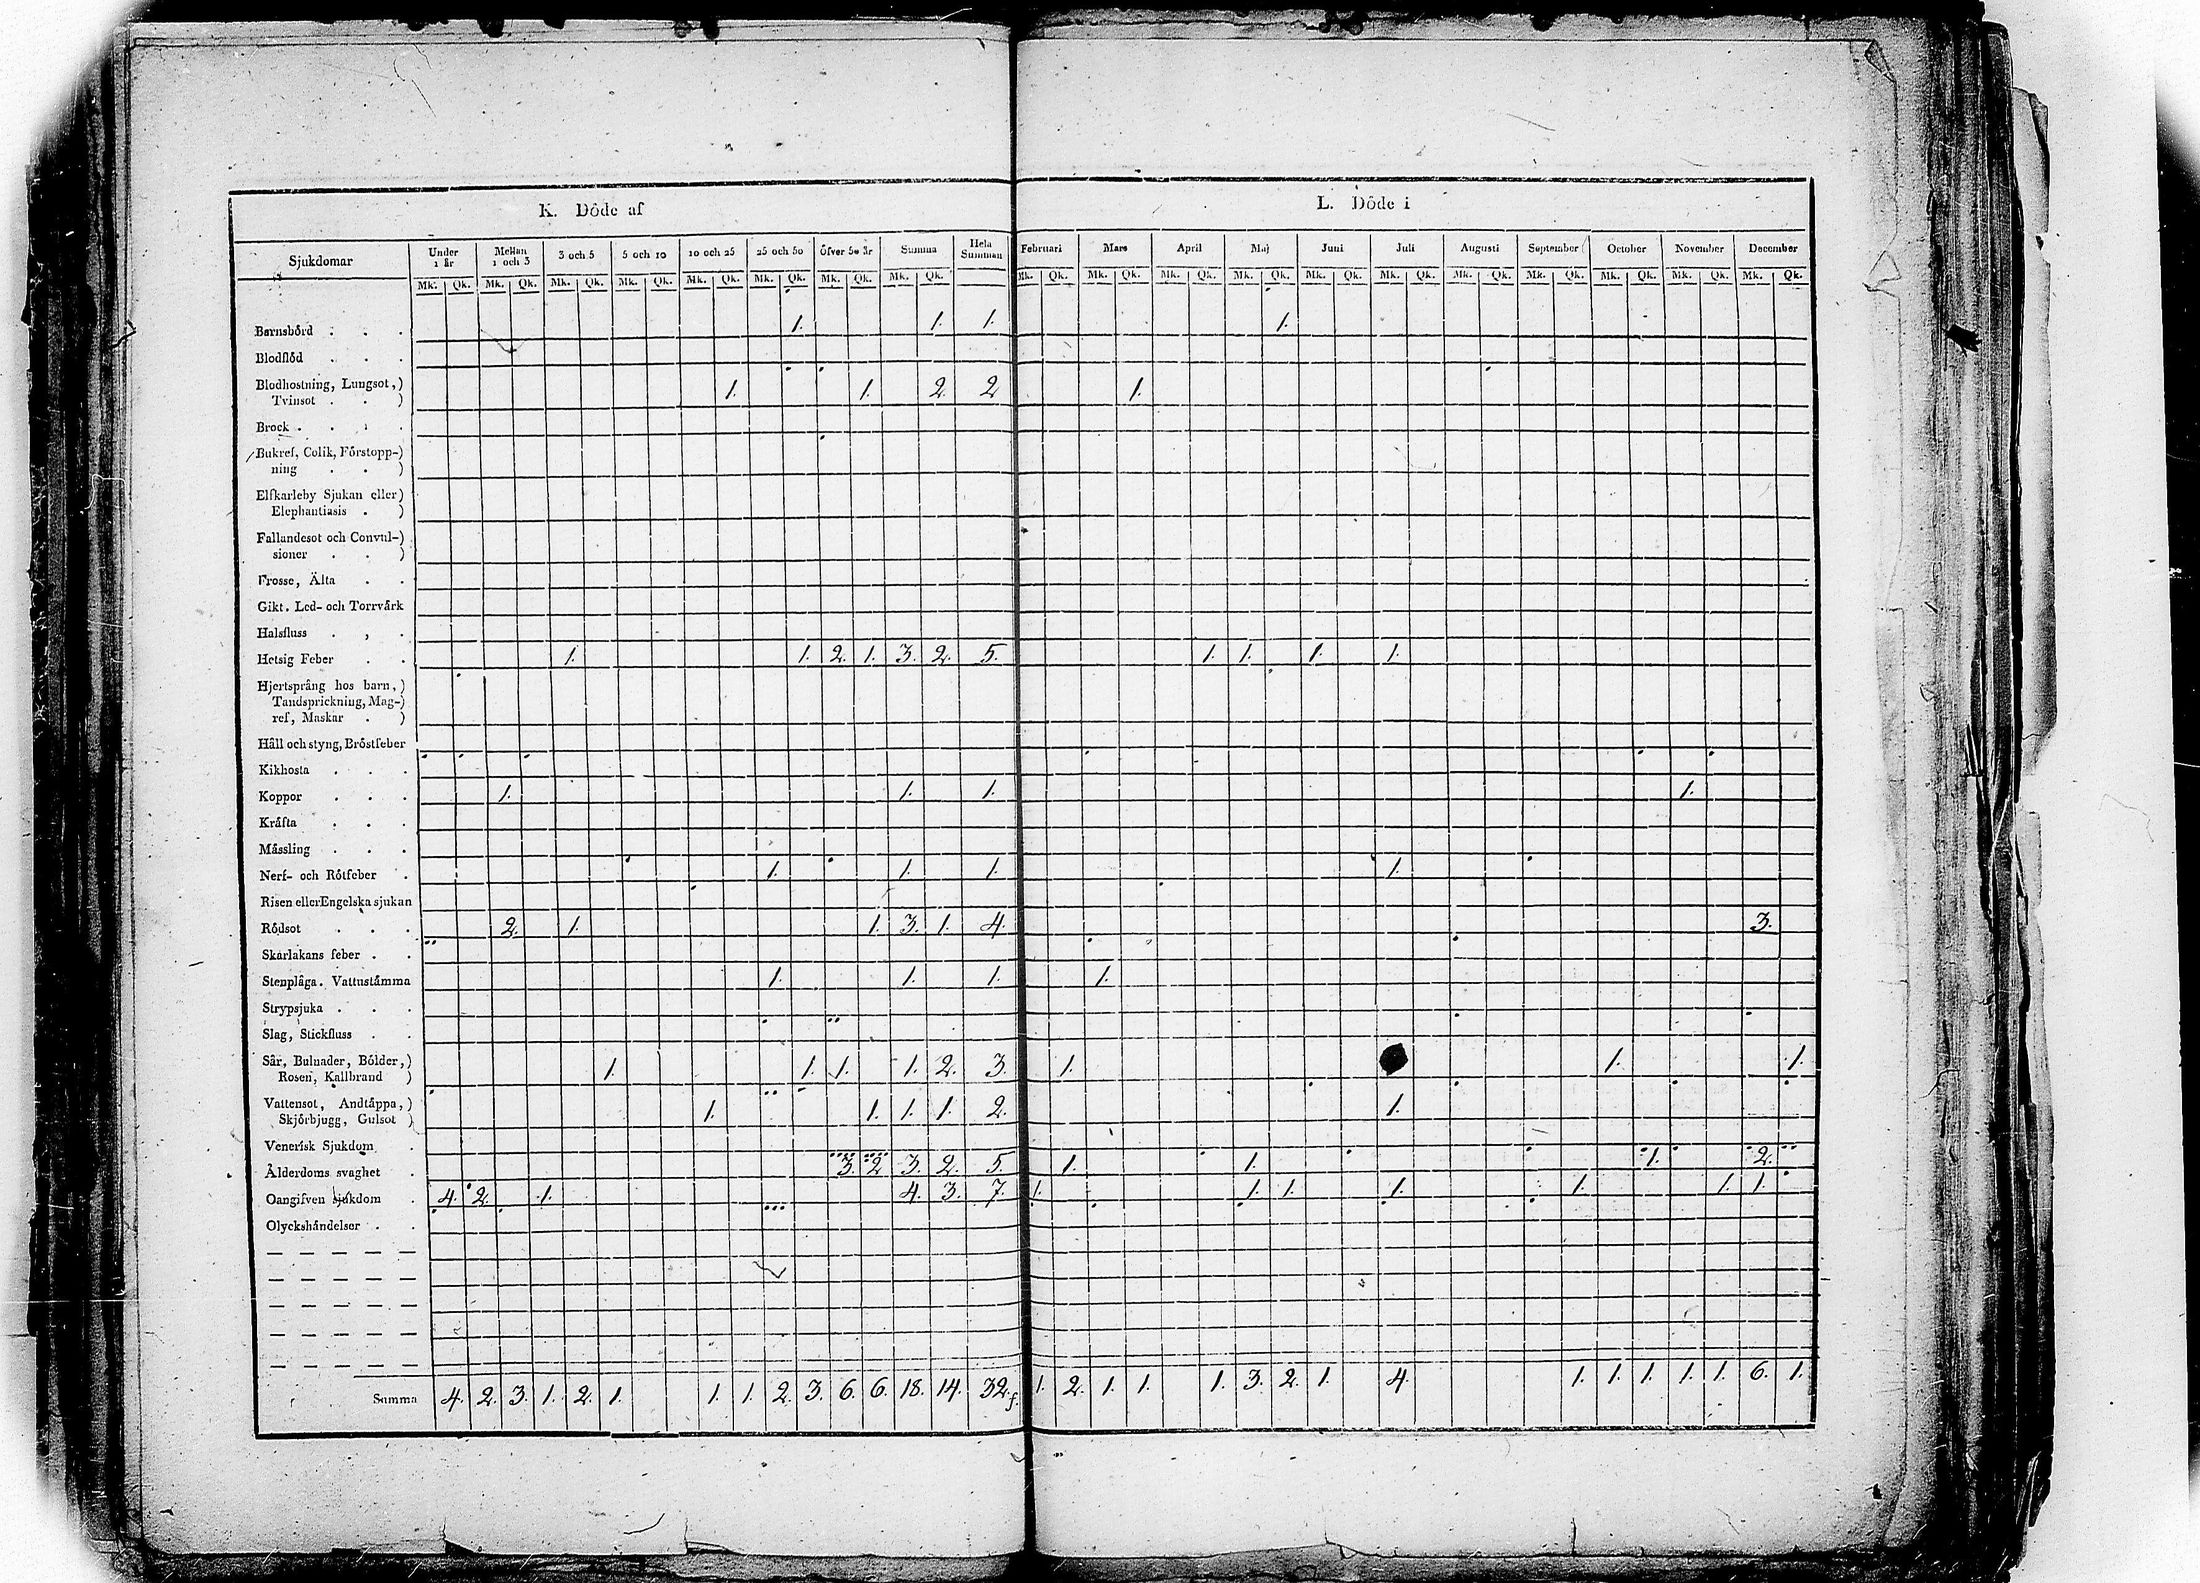 K. Dôde af
L. Dôde i
Sjukdomar Under 1 år Mellan 1 och 3 3 och 5 5 och 10 10 och 25 25 och 50 Öfver 50 år Summa Hela Summan Februari Mars April Maj Juni Juli Augusti September October November December
Mk. Qk. Mk. Qk. Mk. Qk. Mk. Qk. Mk. Qk. Mk. Qk. Mk. Qk. Mk. Qk. Mk. Qk. Mk. Qk. Mk. Qk. Mk. Qk. Mk. Qk. Mk. Qk. Mk. Qk. Mk. Qk. Mk. Qk. Mk. Qk. Mk. Qk.
Barnsbôrd . . . 1. 1. 1. 1.
Blodflôd . . .
Blodhostning, Lungsot,)
Tvinsot . . ) 1. 1. 2. 2 1.
Brock . . . .
Bukref, Colik, Fôrstopp-)
ning . . )
Elfkarleby Sjukan eller)
Elephantiasis . )
Fallandesot och Convul-)
sioner . . )
Frosse, Älta . .
Gikt. Led- och Torrvårk
Halsfluss . , .
Hetsig Feber . . 1. 1. 2. 1. 3. 2. 5. 1. 1. 1. 1.
Hjertsprång hos barn,)
Tandsprickning, Mag-)
ref, Maskar . )
Håll och styng, Brôstfeber
Kikhosta . . .
Koppor . . . 1. 1. 1. 1.
Kråfta . . .
Måssling . . .
Nerf- och Rôtfeber . 1. 1. 1. 1.
Risen eller Engelska sjukan
Rôdsot . . . 2. 1. 1. 3. 1. 4. 3.
Skarlakans feber . .
Stenplåga. Vattuståmma 1. 1. 1. 1.
Strypsjuka . . .
Slag, Stickfluss . .
Sår, Bulnader, Bôlder,)
Rosen, Kallbrand ) 1. 1. 1. 1. 2. 3. 1. 1. 1.
Vattensot, Andtåppa,)
Skjôrbjugg, Gulsot ) 1. 1. 1. 1. 2. 1.
Venerisk Sjukdom .
Ålderdoms svaghet . 3. 2 3. 2. 5. 1. 1. 1. 2.
Oangifven sjukdom . 4. 2. 1. 4. 3. 7. 1. 1. 1. 1. 1. 1. 1.
Olyckshåndelser . .
Summa 4. 2. 3. 1. 2. 1. 1. 1. 2. 3. 6. 6. 18. 14. 32. 1. 2. 1. 1. 1. 3. 2. 1. 4. 1. 1. 1. 1. 1. 6. 1.